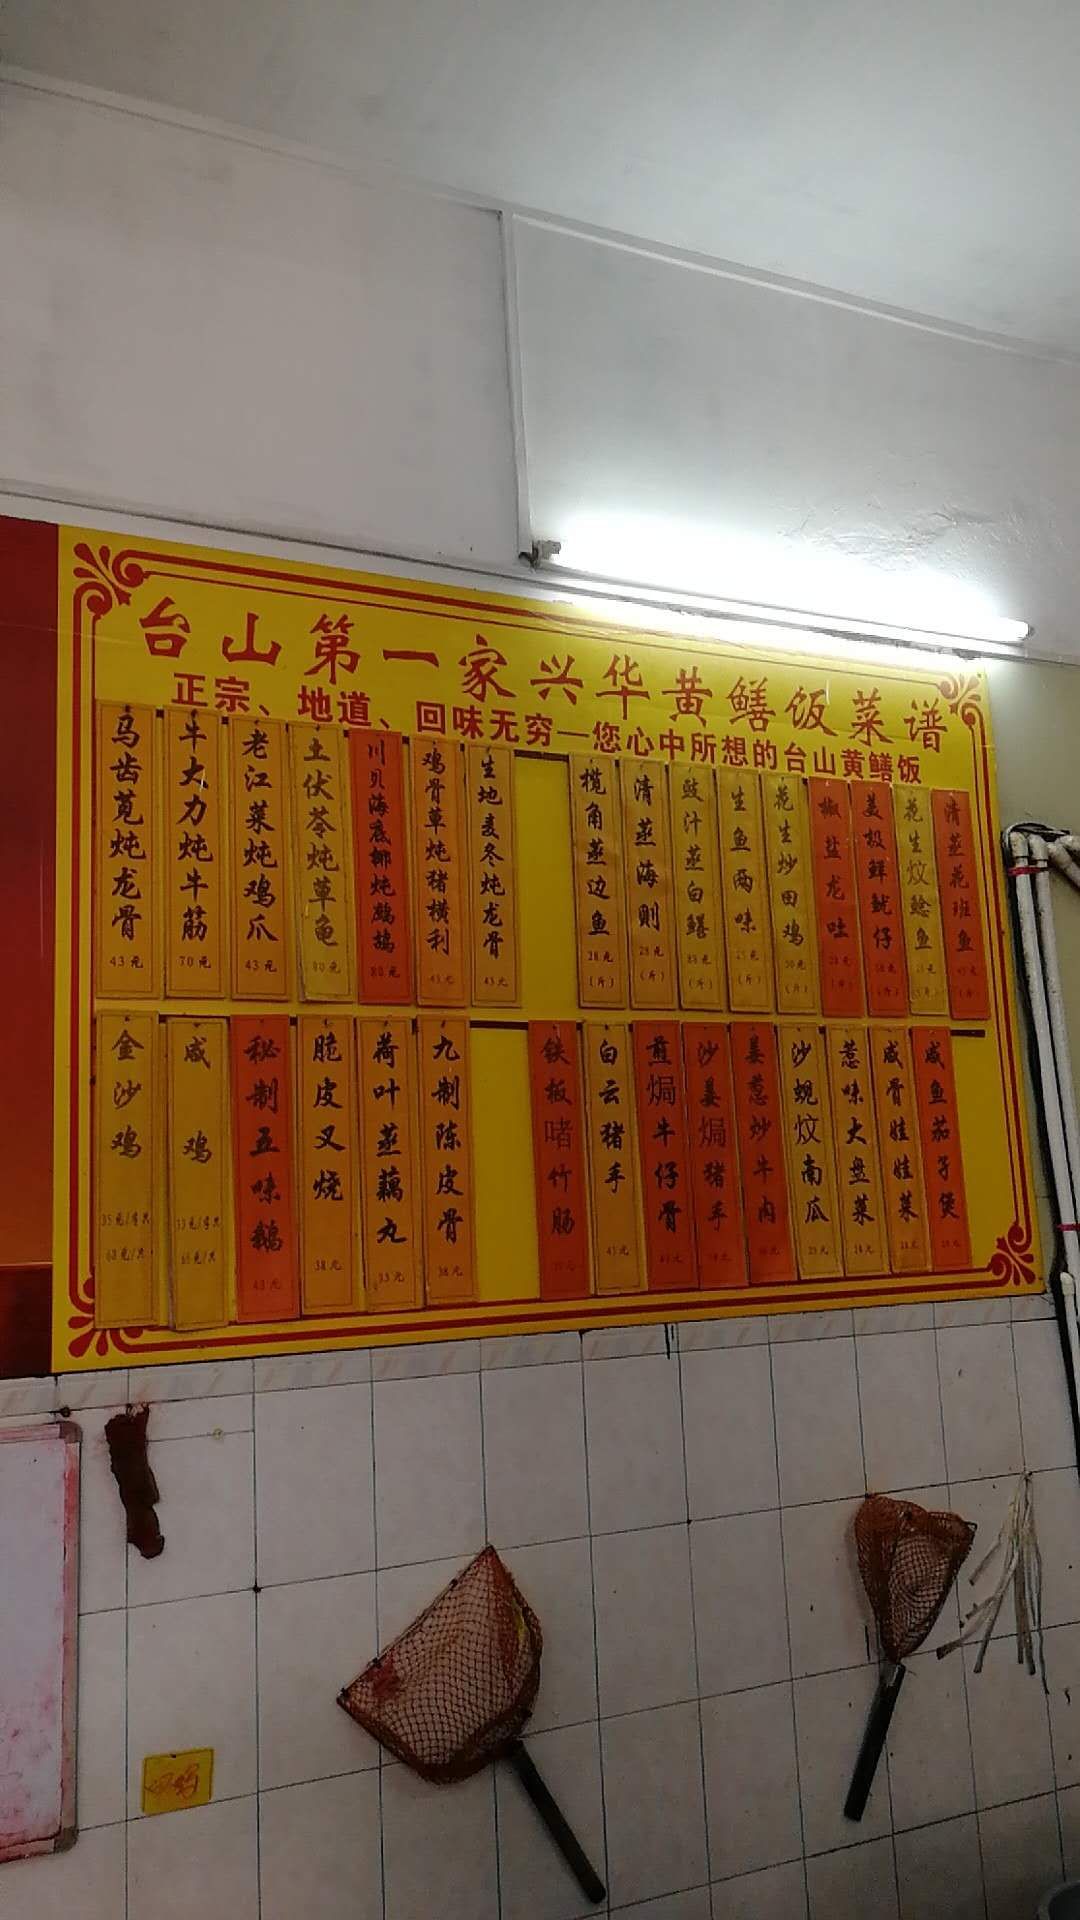 台山第一家兴华黄鳝饭菜谱
正宗、地道、回味无穷—您心中所想的台山黄鳝饭
马齿苋炖龙骨
43元
牛大力炖牛筋
70元
老江菜炖鸡爪
43元
土伏苓炖草龟
80元
川贝海底椰炖鹧鸪
80元
鸡骨草炖猪横利
43元
生地麦冬炖龙骨
43元
榄角蒸边鱼
28元
(斤)
清蒸海则
28元
(斤)
豉汁蒸白鳝
88元
(斤)
生鱼两味
25元
(斤)
花生炒田鸡
50元
(斤)
椒盐龙吐
(斤)
美极鲜鱿仔
(斤)
花生炆鲶鱼
清蒸花班鱼
(斤)
金沙鸡
35元/半只
68元/只
咸鸡
33元/半只
65元/只
秘制五味鹅
43元
脆皮叉烧
38元
荷叶蒸藕丸
33元
九制陈皮骨
38元
铁板啫竹肠
白云猪手
43元
煎焗牛仔骨
沙姜焗猪手
姜葱炒牛肉
沙蚬炆南瓜
25元
惹味大盘菜
28元
咸骨娃娃菜
28元
咸鱼茄子煲